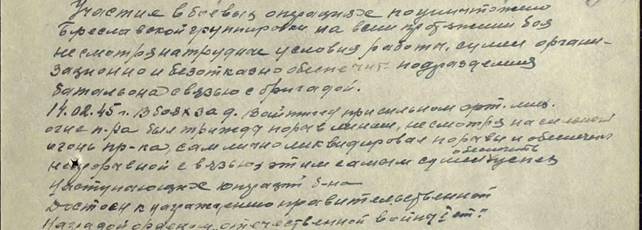 Участия в боевых операциях по уничтожению
Бреславской группировки на всем протяжении боя
несмотря на трудные условия работы, сумел органи-
зационно и безотказно обеспечить подразделения
батальона связью с бригадой.
14.02.45 г. В боях за д. при сильном арт. мин.
огне пр-ка был трижды порыв линии, несмотря на сильный
огонь пр-ка, сам лично ликвидировал порывы и обеспечил
связью этим самым сумел обеспечить успех
наступающих операций б-на
Достоин к награждению правительственной
Наградой орденом "отечественной войны ст."